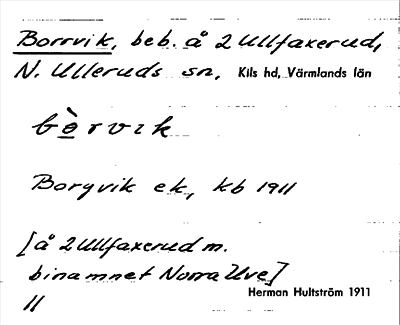 Borrvik, beb. å 2 Ullfaxerud,
N. Ulleruds sn, Kils hd, Värmlands län
bò̱rvık
Borgvik ek, kb 1911
[å 2 Ullfaxerud m.
binamnet Norra Uve]
Herman Hultström 1911
11